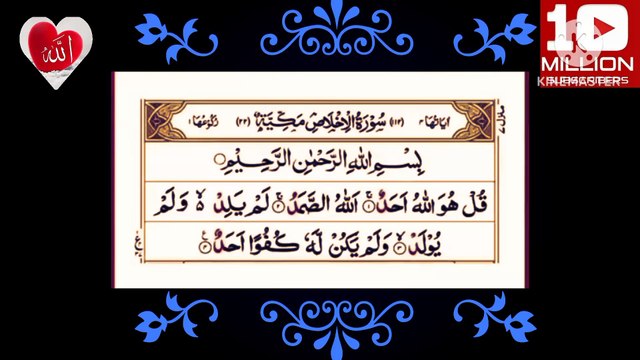 الله
10
MILLION
SUBSCRIBERS
KINEMASTER
اٰيَاتُهَا ٤ (١١٢) سُوْرَةُ الْاِخْلَاصِ مَكِّيَّةٌ (٢٢) رُكُوْعُهَا ١
بِسْمِ اللهِ الرَّحْمٰنِ الرَّحِيْمِ
قُلْ هُوَ اللهُ اَحَدٌ ۚ‏ ١ اَللهُ الصَّمَدُ ۚ‏ ٢ لَمْ يَلِدْ ۙ وَلَمْ
يُوْلَدْ ۙ‏ ٣ وَلَمْ يَكُنْ لَّهٗ كُفُوًا اَحَدٌ ٤